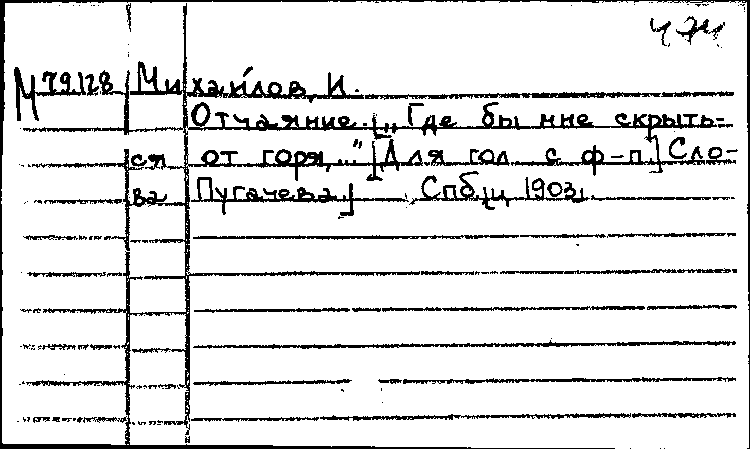 М 79.128 Михайлов, И.
Отчаяние. [„Где бы мне скрыть-
ся от горя,..." [Для гол. с ф-п.] Сло-
ва Пугачева] Спб., ц. 1903.